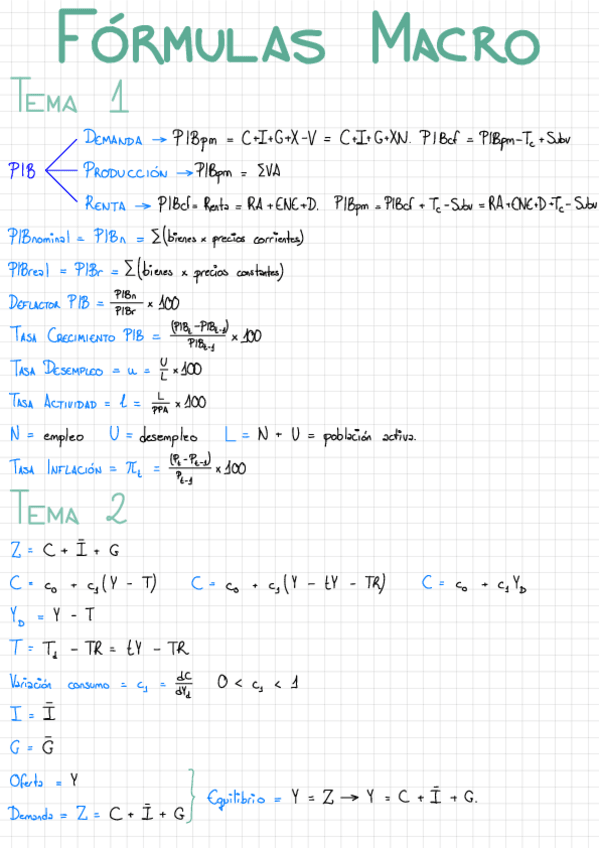 FÓRMULAS MACRO
TEMA 1
DEMANDA → PIBpm = C+I+G+X-V = C+I+G+XN. PIBcf = PIBpm-Tc+Subv
PIB
PRODUCCIÓN → PIBpm = ΣVA
RENTA → PIBcf = Renta = RA+ENE+D. PIBpm = PIBcf + Tc - Subv = RA+ENE+D+Tc-Subv
PIBnominal = PIBn = Σ(bienes x precios corrientes)
PIBreal = PIBr = Σ(bienes x precios constantes)
DEFLACTOR PIB = PIBn/PIBr x 100
TASA CRECIMIENTO PIB = (PIBt - PIBt-1)/PIBt-1 x 100
TASA DESEMPLEO = u = U/L x 100
TASA ACTIVIDAD = l = L/PPA x 100
N = empleo U = desempleo L = N + U = población activa.
TASA INFLACIÓN = πt = (Pt - Pt-1)/Pt-1 x 100
TEMA 2
Z = C + Ī + G
C = c0 + c1(Y - T) C = c0 + c1(Y - tY - TR) C = c0 + c1YD
YD = Y - T
T = T1 - TR = tY - TR
Variación consumo = c1 = dC/dYd 0 < c1 < 1
I = Ī
G = Ḡ
Oferta = Y
Demanda = Z = C + Ī + G
Equilibrio = Y = Z → Y = C + Ī + G.